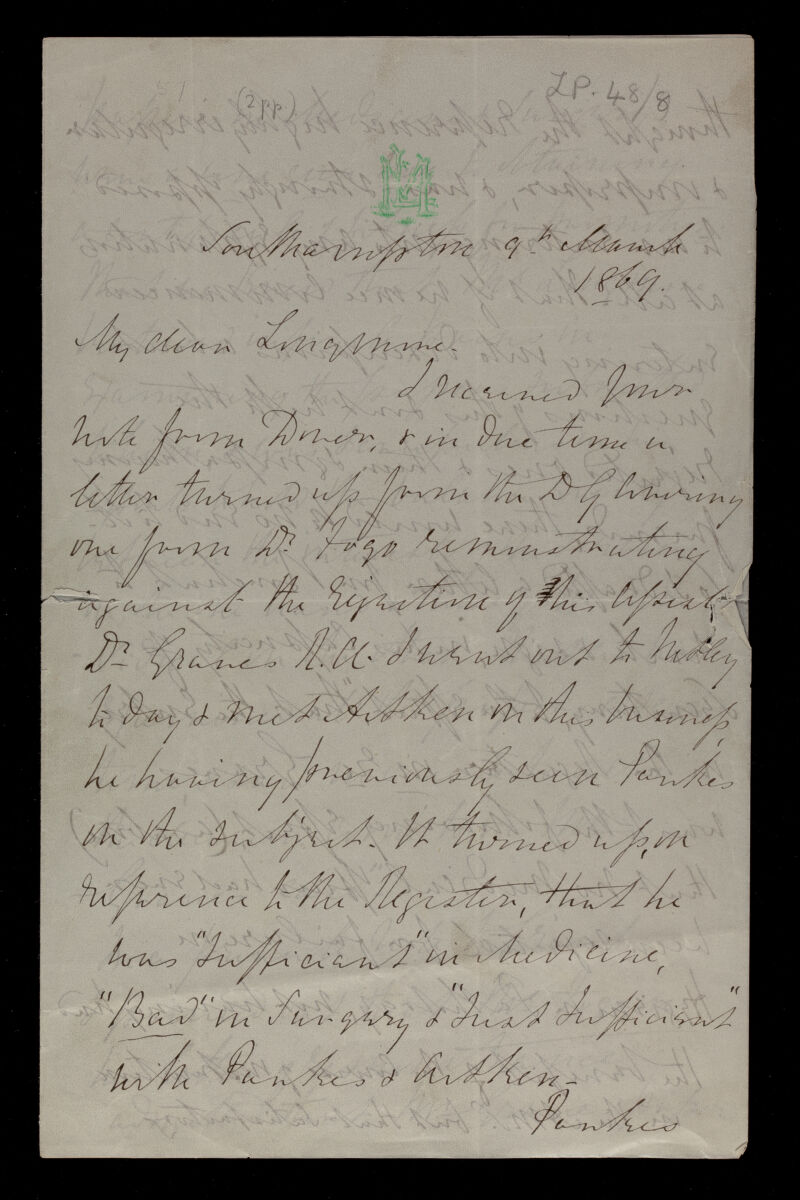 (2pp.)
LP. 48/8
Southampton 9th March
1869.
My dear Longmore.
I received your
note from Dover, & in due time a
letter turned up from the D G covering
one from Dr. Fogo remonstrating
against the rejection of this
Dr Graves R.A. I went out to Netley
to day & met Aitken on this business,
he having previously seen Parkes
on the subject. It turned up, on
reference to the Register, that he
was "Sufficient" in Medicine,
"Bad" in Surgery & "Just Sufficient"
with Parkes & Aitken-
Parkes